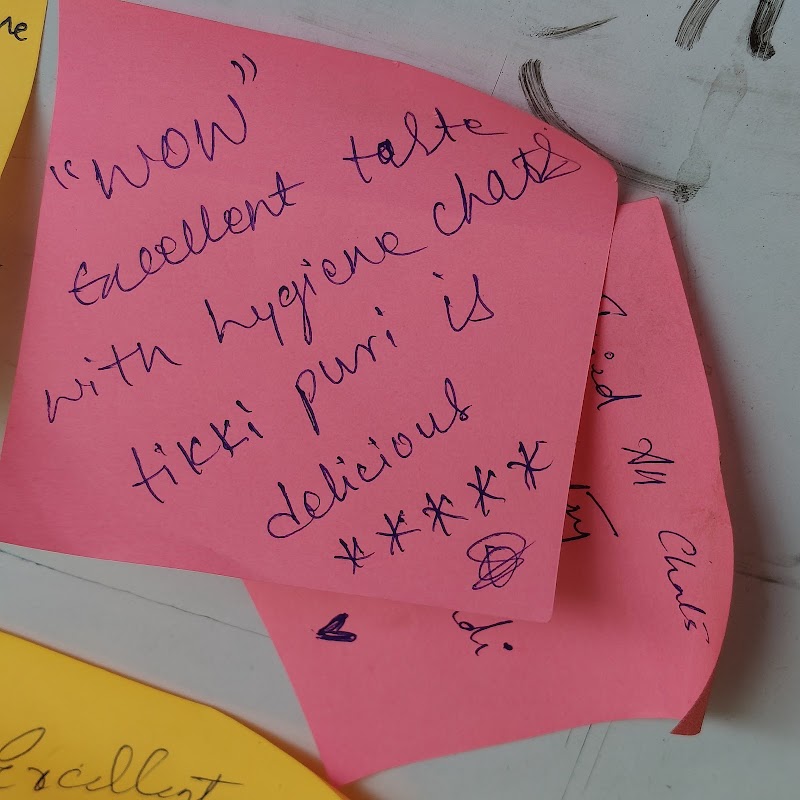 "WOW"
Excellent taste
with hygiene chats
tikki puri is
delicious
*****
All Chats
Try
di
Excellent
ne